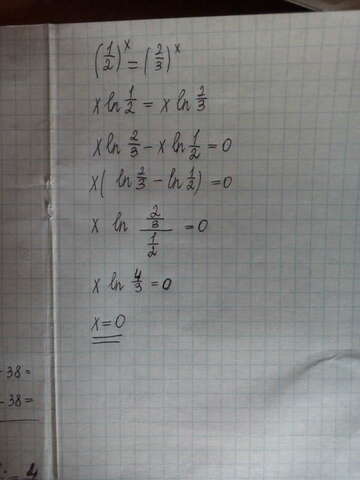 (1/2)^x = (2/3)^x
x ln 1/2 = x ln 2/3
x ln 2/3 - x ln 1/2 = 0
x( ln 2/3 - ln 1/2) = 0
x ln (2/3)/(1/2) = 0
x ln 4/3 = 0
x = 0
38 =
- 38 =